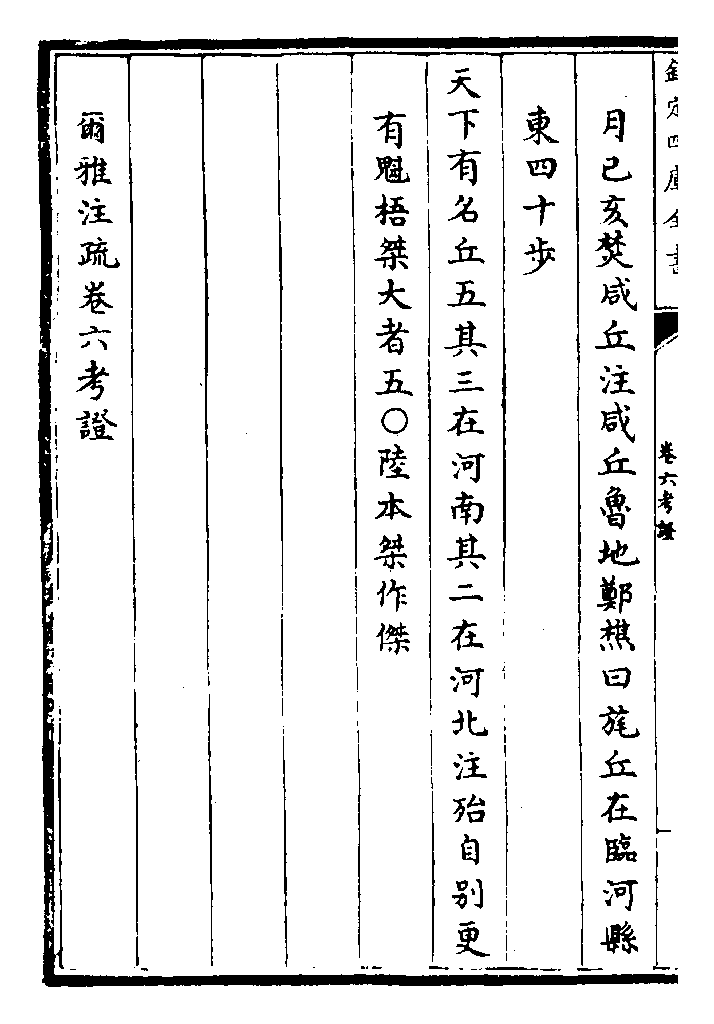 欽定四庫全書
卷六考證
月己亥焚咸丘注咸丘魯地鄭樵曰旄丘在臨河縣
東四十步
天下有名丘五其三在河南其二在河北注殆自别更
有魁梧桀大者五○陸本桀作傑
爾雅注疏卷六考證